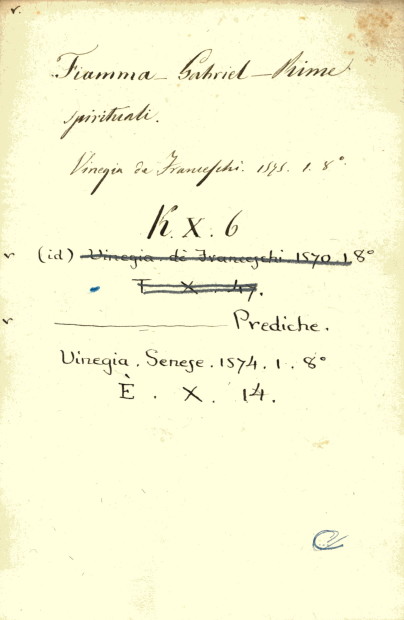 v.
Fiamma - Gabriel - Rime
spirituali.
Vinegia de Franceschi. 1575. 1. 8°.
K. X. 6
v (id) Vinegia. de Franceschi 1570. 1 8°
E X 47.
v Prediche.
Vinegia. Senese. 1574. 1. 8°
È . X . 14.